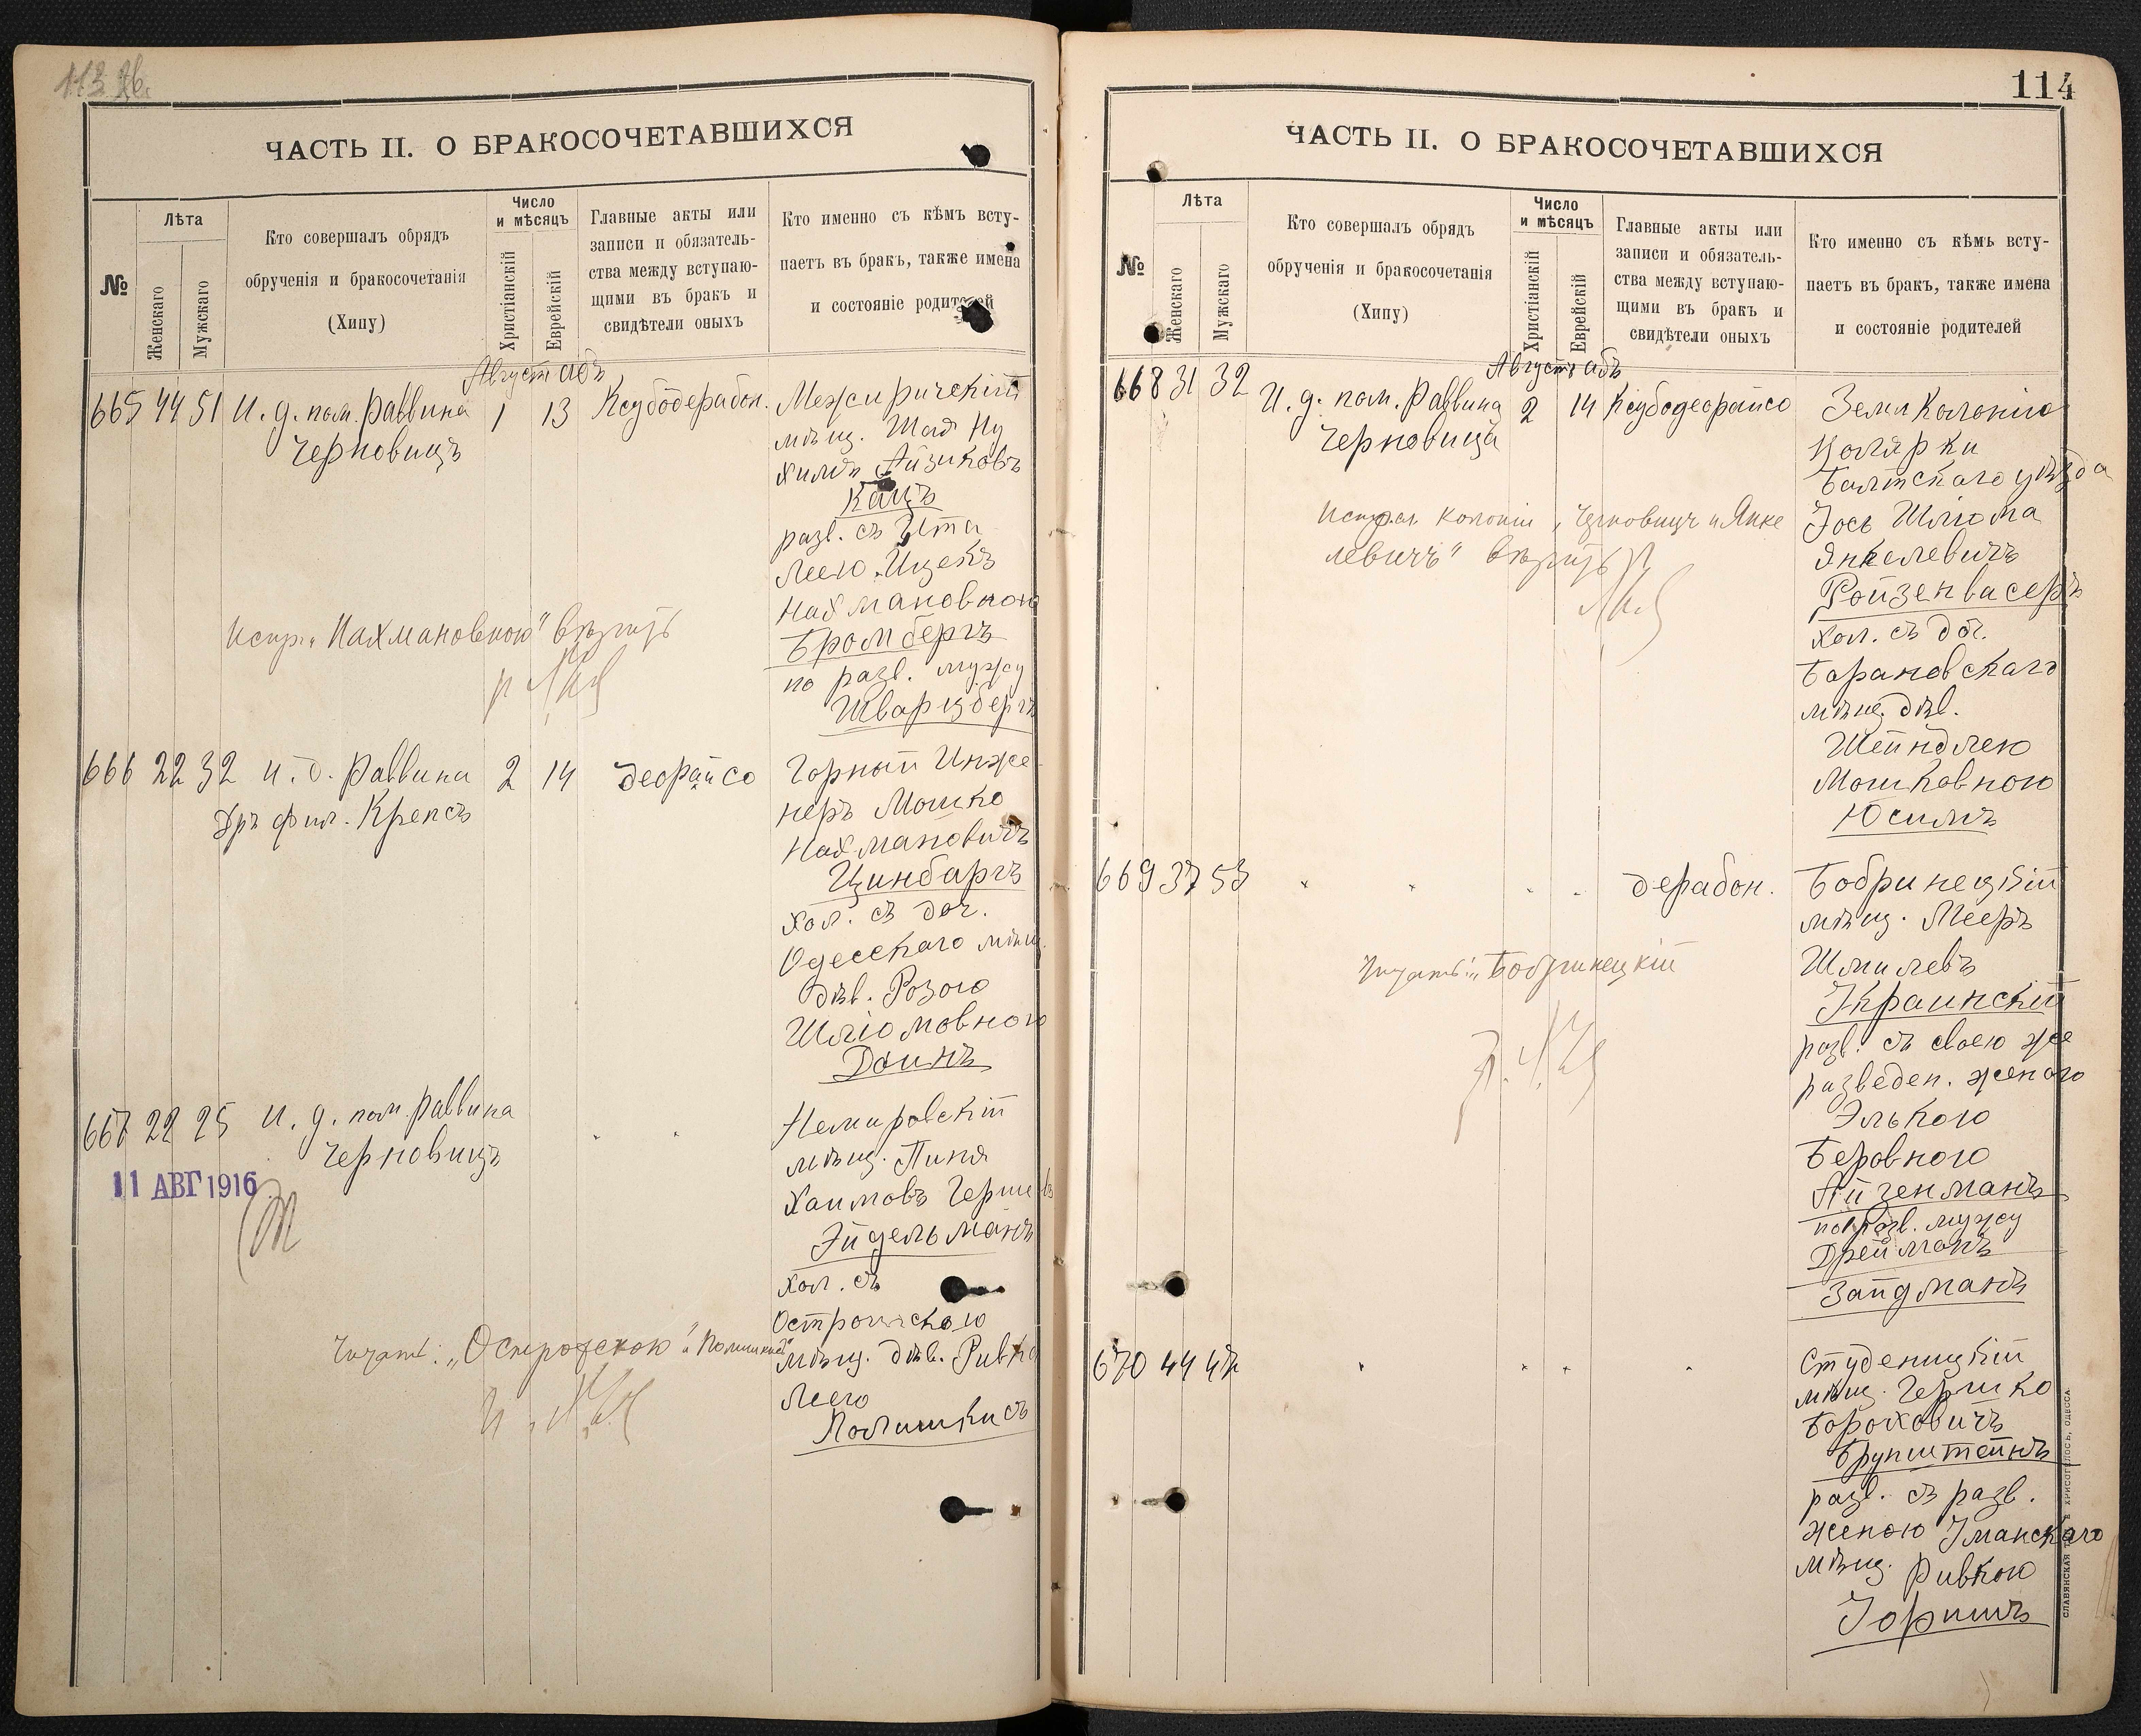 113 об.
ЧАСТЬ II. О БРАКОСОЧЕТАВШИХСЯ
№
Лѣта
Женскаго
Мужскаго
Кто совершалъ обрядъ
обрученія и бракосочетанія
(Хипу)
Число
и мѣсяцъ
Христіанскій
Еврейскій
Главные акты или
записи и обязатель-
ства между вступаю-
щими въ бракъ и
свидѣтели оныхъ
Кто именно съ кѣмъ всту-
паетъ въ бракъ, также имена
и состояніе родителей
Август Абъ
665 44 51 И. д. пом. раввина 1 13 Ксубодерабон.
Черновицъ
Межиричскій
мѣщ.
Айзиковъ
Кацъ
разв. съ Ита
Леею Ицекъ
Нахмановною
Бромбергъ
по разв. мужу
Шварцбергъ
Испр. „Нахмановною" вѣрить
666 22 32 и. д. раввина 2 14 деорайсо
Дръ фил. Крепсъ
Горный Инже
неръ Мошко
Нахмановичъ
Цинбаргъ
хол. съ доч.
Одесскаго мѣщ.
дѣв. Розою
Шліомовною
Доинъ
667 22 25 и. д. пом. раввина
Черновицъ
11 АВГ 1916
Немировскій
мѣщ. Пиня
Хаимовъ Гершк
Эйдельманъ
хол. съ
мѣщ. дѣв. Ривка
Леею
Полишкисъ
Читать: „Острожскою"
114
ЧАСТЬ II. О БРАКОСОЧЕТАВШИХСЯ
№
Лѣта
Женскаго
Мужскаго
Кто совершалъ обрядъ
обрученія и бракосочетанія
(Хипу)
Число
и мѣсяцъ
Христіанскій
Еврейскій
Главные акты или
записи и обязатель-
ства между вступаю-
щими въ бракъ и
свидѣтели оныхъ
Кто именно съ кѣмъ всту-
паетъ въ бракъ, также имена
и состояніе родителей
Августъ Абъ
668 31 32 И. д. пом. Раввина 2 14 Ксубодеорайсо
Черновица
Земл колоніи
Балтскаго уѣзда
Іось Шліома
Янкелевичъ
Ройзенвасеръ
хол. съ доч.
Барановскаго
мѣщ. дѣв.
Шейндлею
Мошковною
Юсимъ
Испр. колоніи, Черновицъ и Янке
левичъ" вѣрить
669 37 53 дерабон.
Бобринецкій
мѣщ. Мееръ
Шмилевъ
Украинскій
разв. съ своею же
разведен. женою
Элькою
Беровною
Айзенманъ
по разв. мужу
Дрейманъ
Зайдманъ
Читать: „Бобринецкій
670 44 47
Студеницкій
мѣщ. Гершко
Бороховичъ
Брунштейнъ
разв. съ разв.
женою Уманскаго
мѣщ. Ривкою
СЛАВЯНСКАЯ ТИП. Е. ХРИСОГЕЛОСЪ, ОДЕССА.